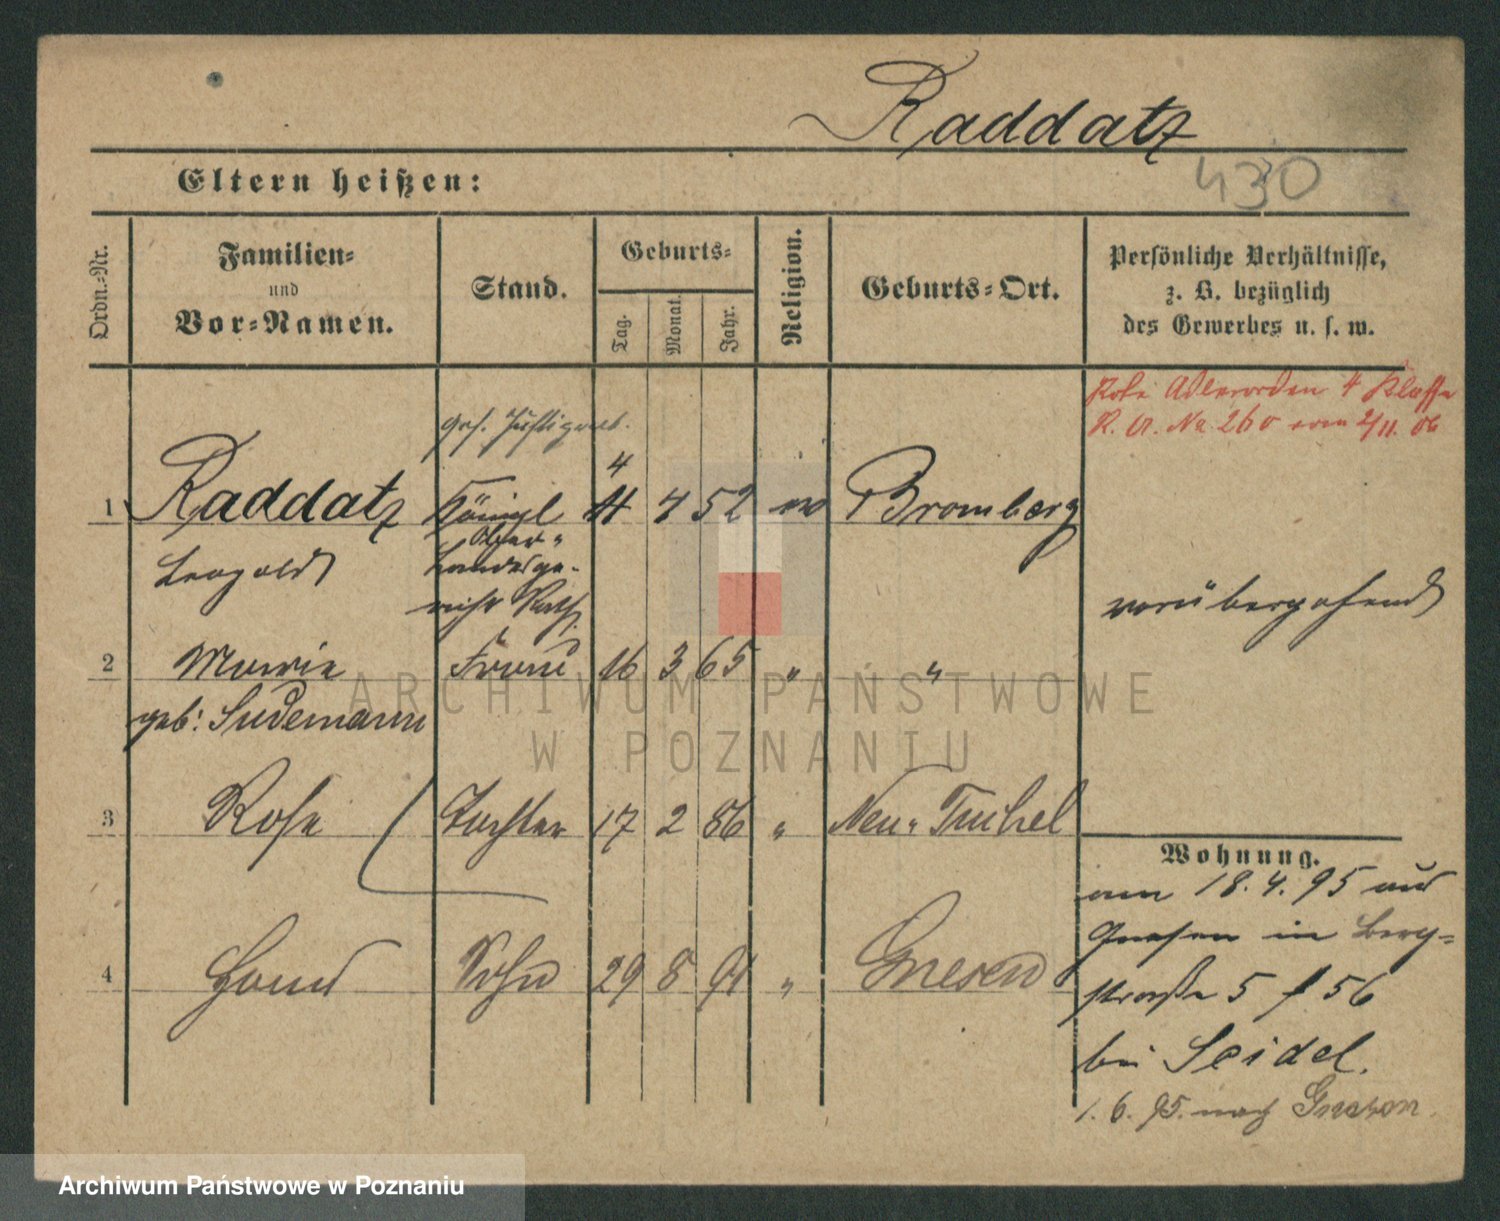 Raddatz
430
Eltern heißen:
Ordn.-Nr.
Familien-
und
Vor-Namen.
Stand.
Geburts-
Tag.
Monat.
Jahr.
Religion.
Geburts-Ort.
Persönliche Verhältnisse,
z. B. bezüglich
des Gewerbes u. s. w.
Rote Adlerorden 4 Klasse
R. A. No 260 vom 2/11. 06
geh. Justizrat.
4
1 Raddatz Königl 11 4 52 ev Bromberg
Leopold
Ober-
Landesge-
richts Rath
vorübergehend
2 Marie Frau 16 3 65 " "
geb: Sudemann
3 Rose Tochter 17 2 86 " Neu- Tuchel
Wohnung.
am 18.4.95 aus
Gnesen in Berg-
straße 5 f 56
bei Seidel.
1.6.95. nach Gnesen
4 Hans Sohn 29 8 91 " Gnesen
ARCHIWUM PAŃSTWOWE
W POZNANIU
Archiwum Państwowe w Poznaniu